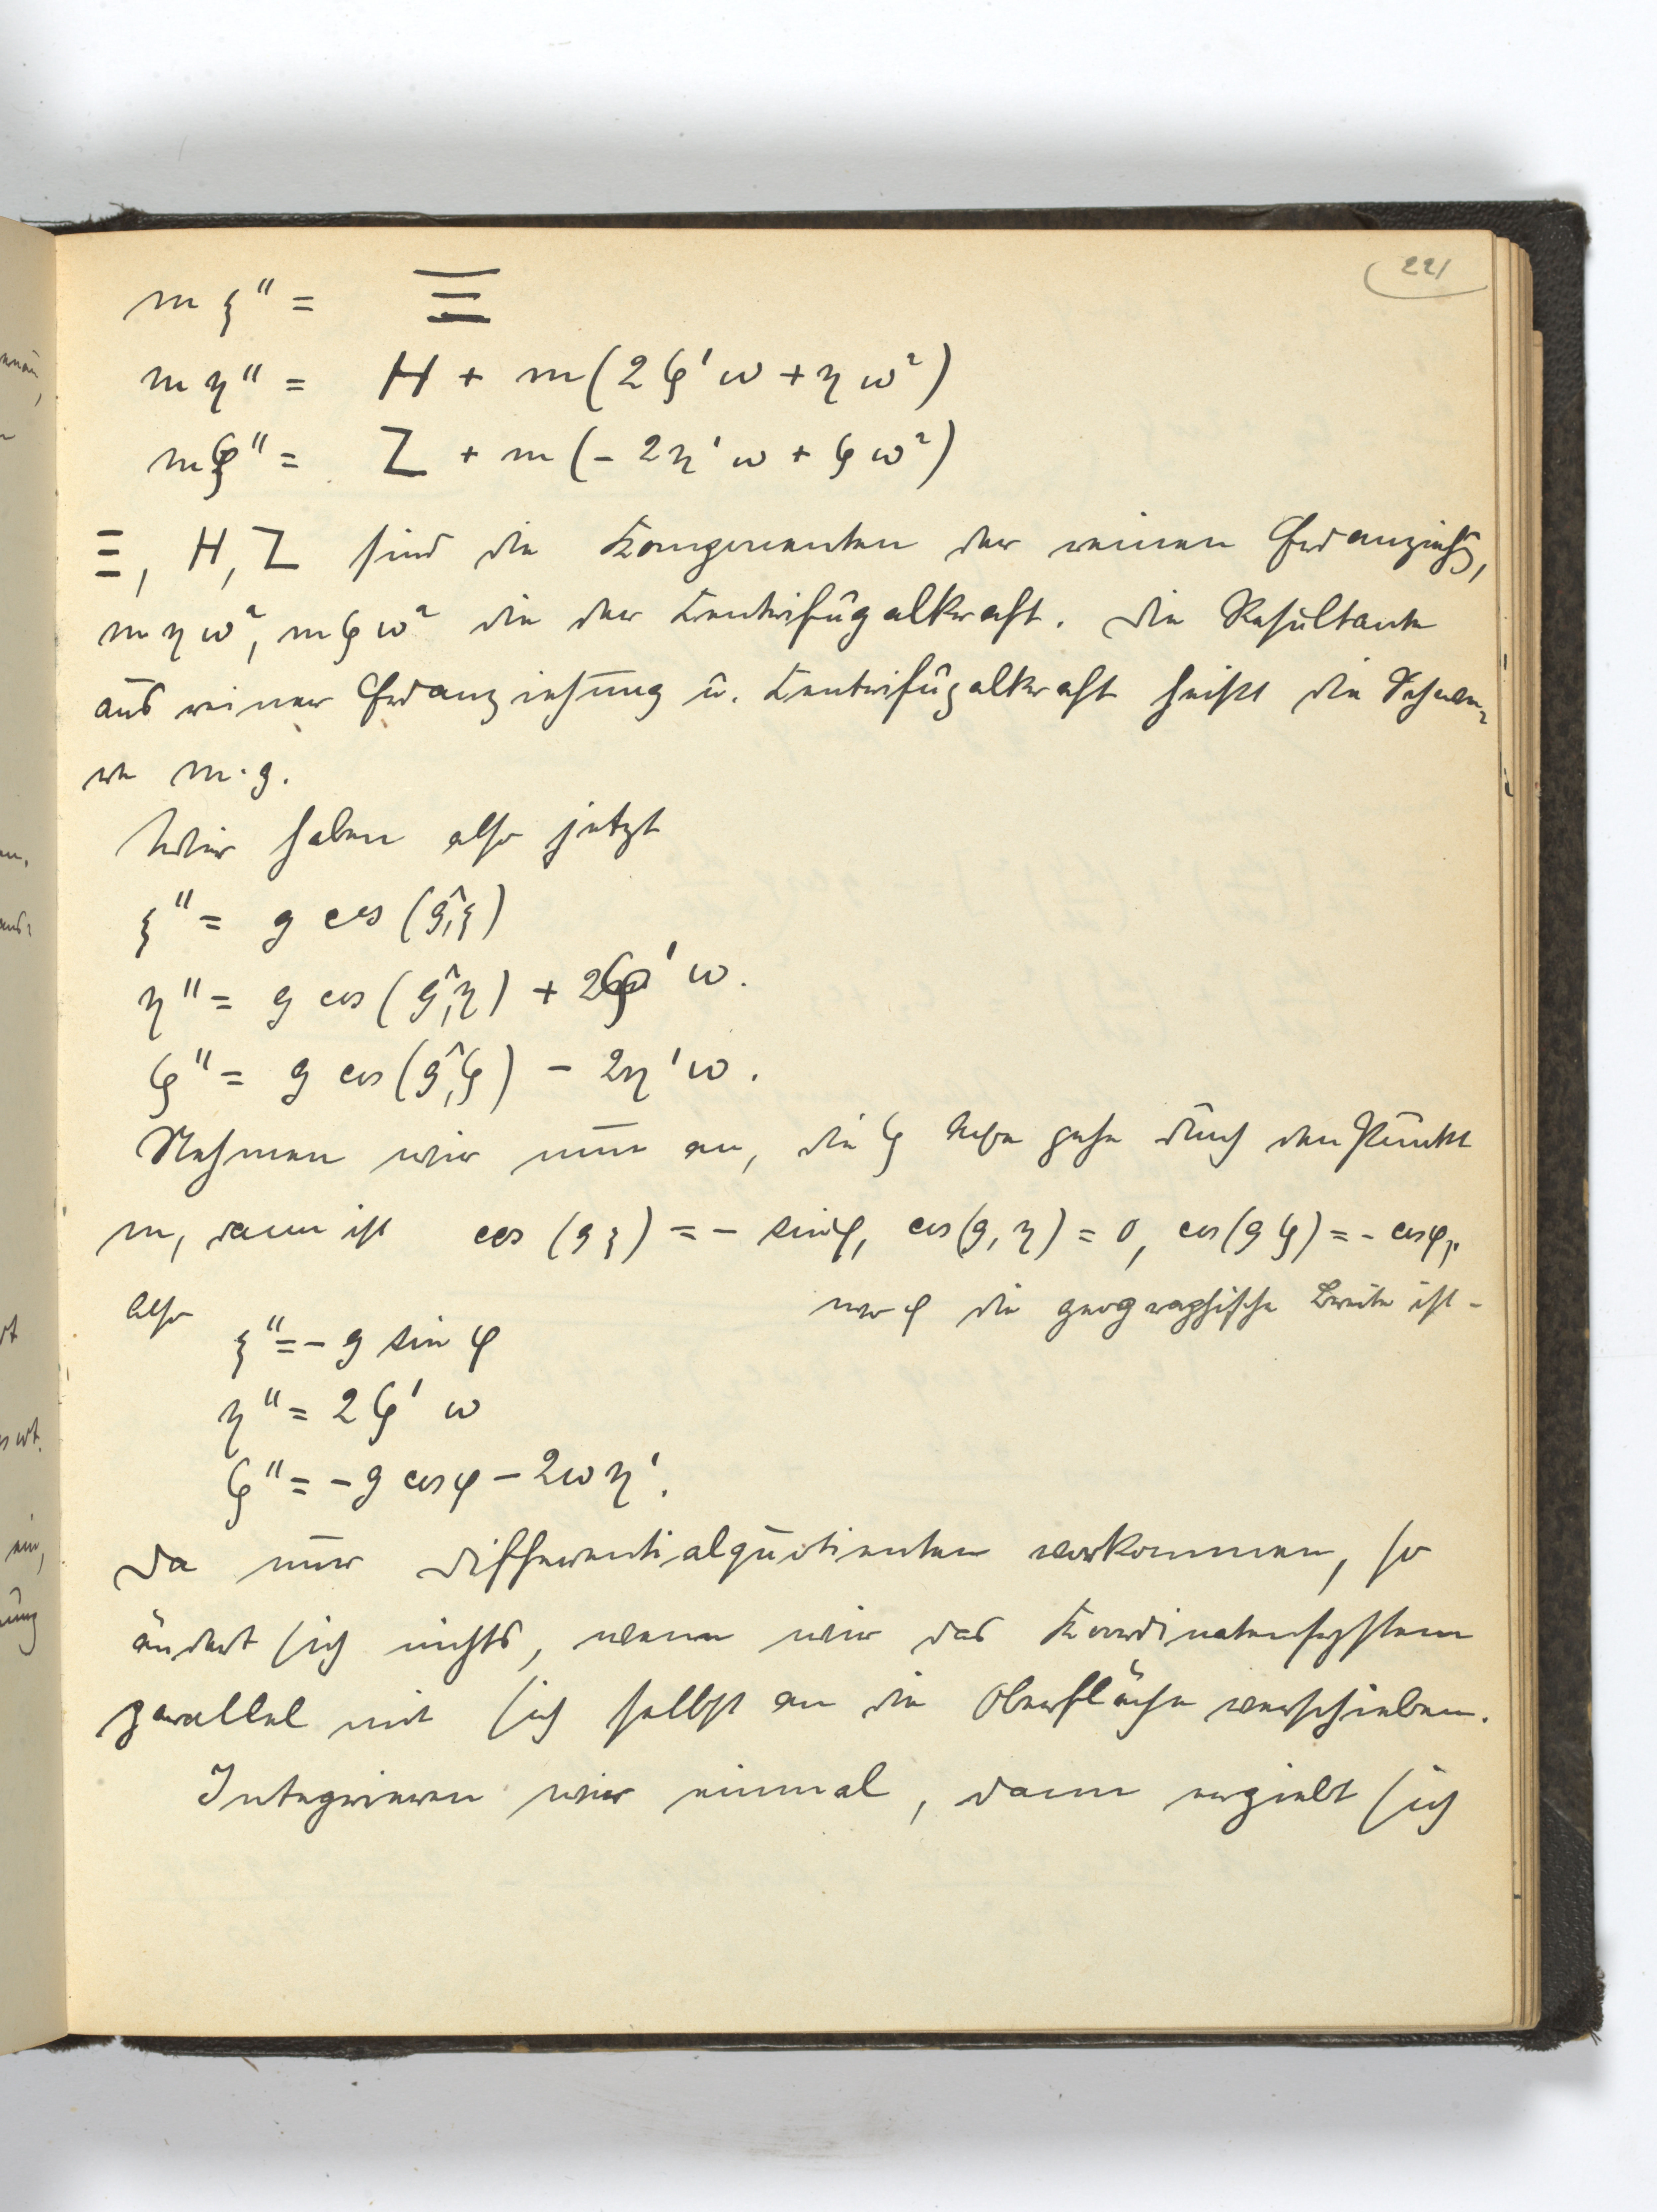 221
m ξ'' = Ξ
m η'' = H + m(2ζ'ω + η ω²)
m ζ'' = Z + m(- 2η'ω + ζω²)
Ξ, H, Z sind die Komponenten der reinen Erdanziehg,
m η ω², m ζ ω² die der Zentrifugalkraft. Die Resultante
aus reiner Erdanziehung u. Zentrifugalkraft heißt die Schwe-
re m·g.
Wir haben also jetzt
ξ'' = g cos (g,^ξ)
η'' = g cos (g,^η) + 2ζ'ω.
ζ'' = g cos (g,^ζ) - 2η'ω.
Nehmen wir nun an, die ζ Achse gehe durch den Punkt
m, dann ist cos (g ξ) = - sin φ, cos (g, η) = 0, cos (g ζ) = - cos φ,
also wo φ die geographische Breite ist -
ξ'' = - g sin φ
η'' = 2ζ' ω
ζ'' = - g cos φ - 2ω η'.
Da nur Differentialquotienten vorkommen, so
ändert sich nichts, wenn wir das Koordinatensystem
parallel mit sich selbst an die Oberfläche verschieben.
Integrieren wir einmal, dann ergiebt sich